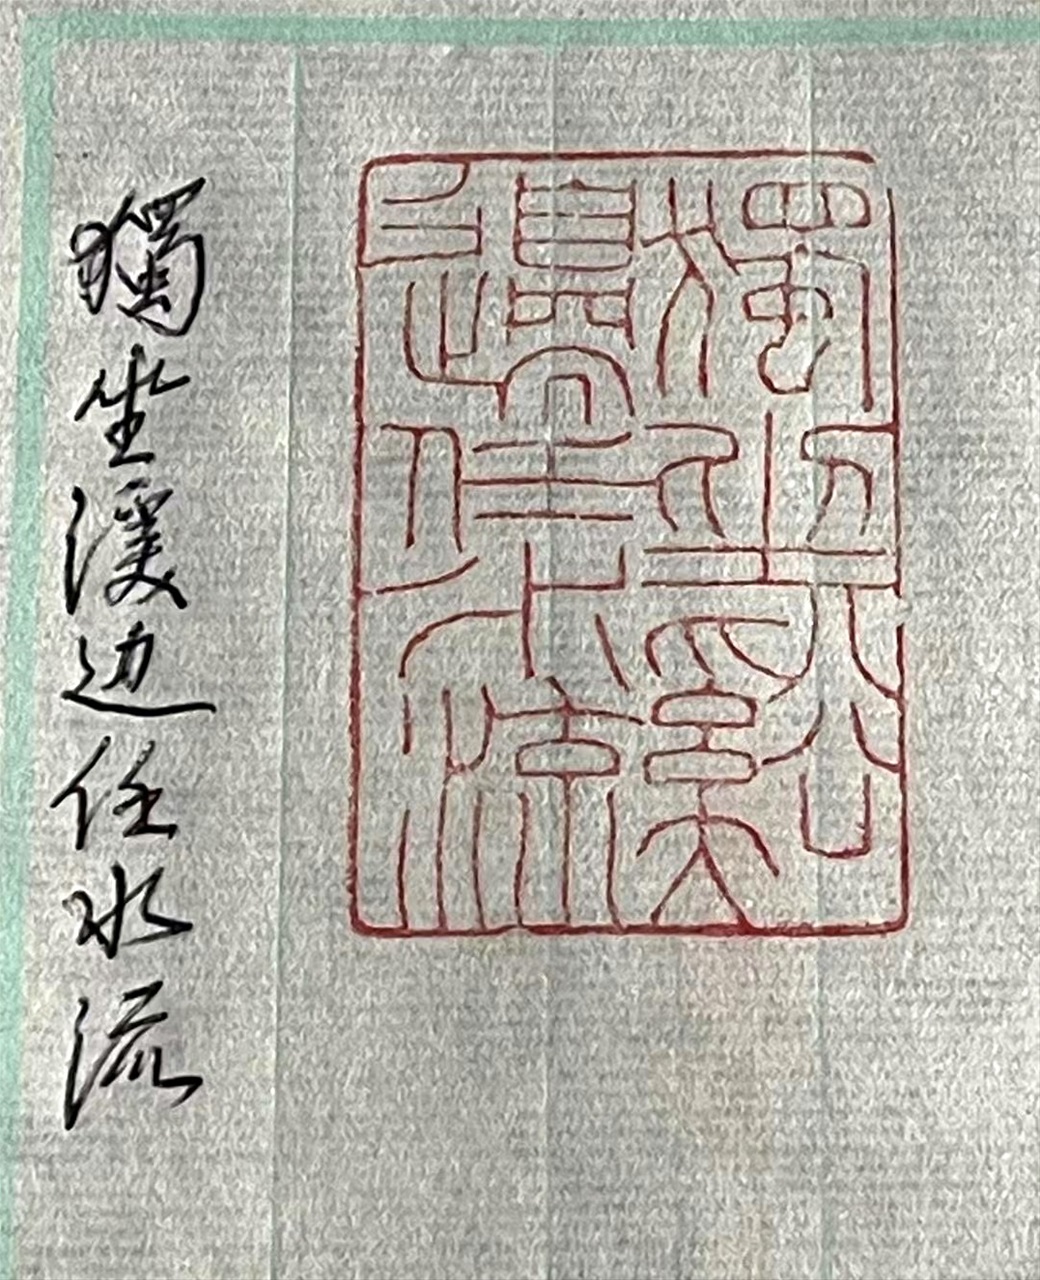 獨坐谿
邊任水流
獨坐溪边任水流